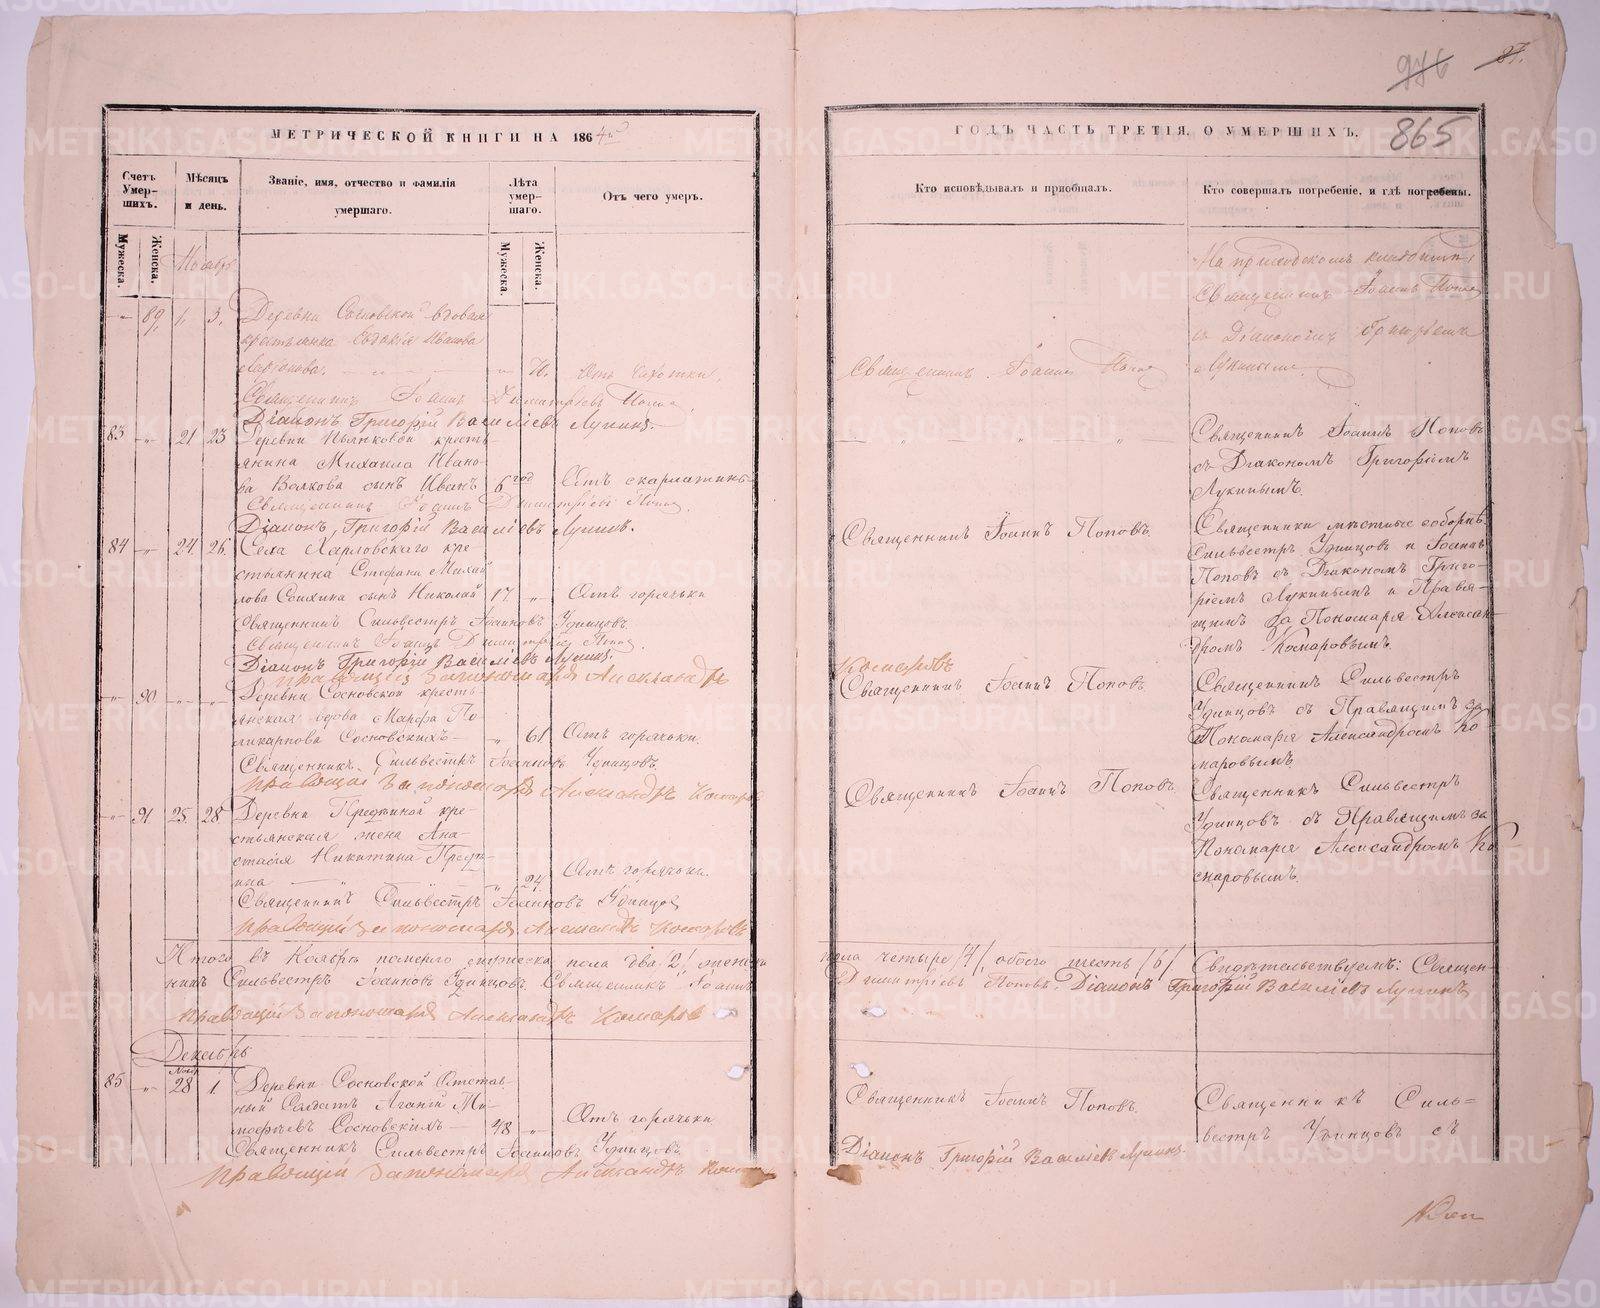 87.
976
865
МЕТРИЧЕСКОЙ КНИГИ НА 1864й
Счетъ Умершихъ.
Мѣсяцъ и день.
Званіе, имя, отчество и фамилія умершаго.
Лѣта умершаго.
Отъ чего умеръ.
Мужеска.
Женска.
Мужеска.
Женска.
Ноябрь
— 89. 1. 3. Деревни Сосновской вдовая
крестьянка Евдокія Иванова
— 70. Отъ чахотки.
Священникъ Іоаннъ Димитріевъ Поповъ
Діаконъ Григорій Василіевъ Лукинъ.
83 „ 21 23 Деревни Пьянковой кресть-
янина Михаила Ивано-
ва Волкова сынъ Иванъ 6 год Отъ скарлатины
Священникъ Іоаннъ Димитріевъ Поповъ.
Діаконъ Григорій Василіевъ Лукинъ.
84 „ 24. 26. Села Харловскаго кре-
стьянина Стефана Михай-
лова сынъ Николай 17. „ Отъ горячьки
Священникъ Сильвестръ Іоанновъ Удинцовъ.
Священникъ Іоаннъ Димитріевъ Поповъ
Діаконъ Григорій Василіевъ Лукинъ.
правящій за пономаря Александръ
„ 90. „ „ Деревни Сосновской кресть-
янская вдова Марфа По-
ликарпова Сосновскихъ — „ 61. Отъ горячьки.
Священникъ Сильвестръ Іоанновъ Удинцовъ.
правящій за пономаря Александръ Комаровъ
„ 91. 25. 28. Деревни кре-
стьянская жена Ана-
стасія Никитина
„ 24. Отъ горячьки.
Священникъ Сильвестръ Іоанновъ Удинцовъ
правящій за пономаря Александръ Комаровъ
Итого въ Ноябрѣ померло мужеска пола два /2/, женска
никъ Сильвестръ Іоанновъ Удинцовъ. Священникъ Іоаннъ
правящій за пономаря Александръ Комаровъ
Декабрь
Нояб.
85 „ 28 1. Деревни Сосновской Отстав-
ный Солдатъ
Сосновскихъ — 48. „ Отъ горячьки
Священникъ Сильвестръ Іоанновъ Удинцовъ.
правящій за пономаря Александръ
ГОДЪ ЧАСТЬ ТРЕТІЯ, О УМЕРШИХЪ.
Кто исповѣдывалъ и приобщалъ.
Кто совершалъ погребеніе, и гдѣ погребены.
На приходскомъ кладбищѣ
Священникъ Іоаннъ Поповъ
съ Діакономъ Григоріемъ
Лукинымъ.
Священникъ Іоаннъ Поповъ
Священникъ Іоаннъ Поповъ
съ Діакономъ Григоріемъ
Лукинымъ.
Священникъ Іоаннъ Поповъ.
Священники мѣстные соборнѣ:
Сильвестръ Удинцовъ и Іоаннъ
Поповъ съ Діакономъ Григо-
ріемъ Лукинымъ и Правя-
щимъ за Пономаря Алексан-
дромъ Комаровымъ.
Комаровъ
Священникъ Іоаннъ Поповъ
Священникъ Сильвестръ
Удинцовъ съ Правящимъ за
Пономаря Александромъ Ко-
маровымъ.
Священникъ Іоаннъ Поповъ.
Священникъ Сильвестръ
Удинцовъ съ Правящимъ за
Пономаря Александромъ Ко-
маровымъ.
пола четыре /4/, обоего шесть /6/ Свидѣтельствуемъ: Священ-
Димитріевъ Поповъ. Діаконъ Григорій Василіевъ Лукинъ
Священникъ Іоаннъ Поповъ.
Священникъ Силь-
вестръ Удинцовъ съ
Діаконъ Григорій Василіевъ Лукинъ